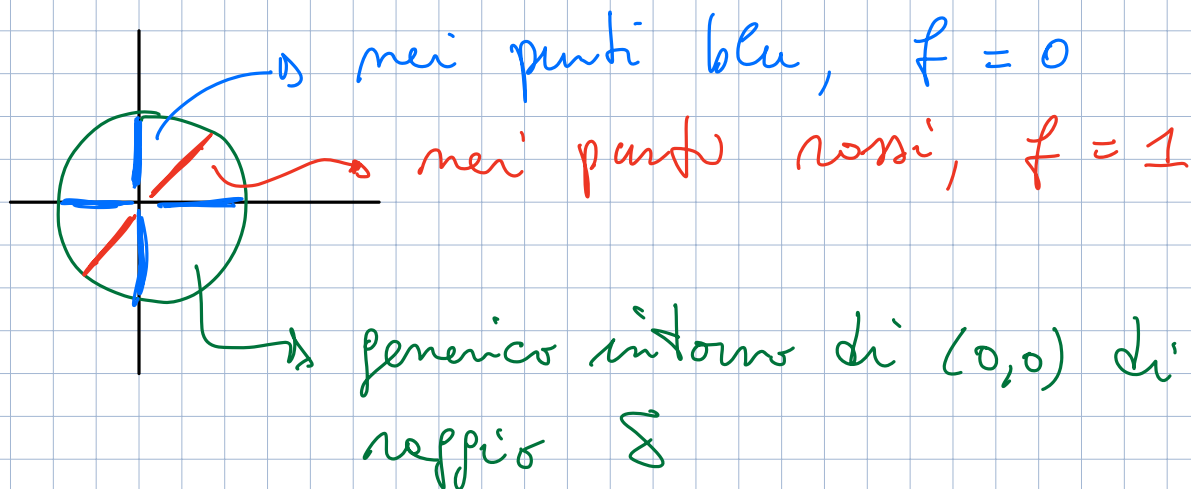 nei punti blu, f = 0
nei punto rossi, f = 1
generico intorno di (0,0) di
raggio δ